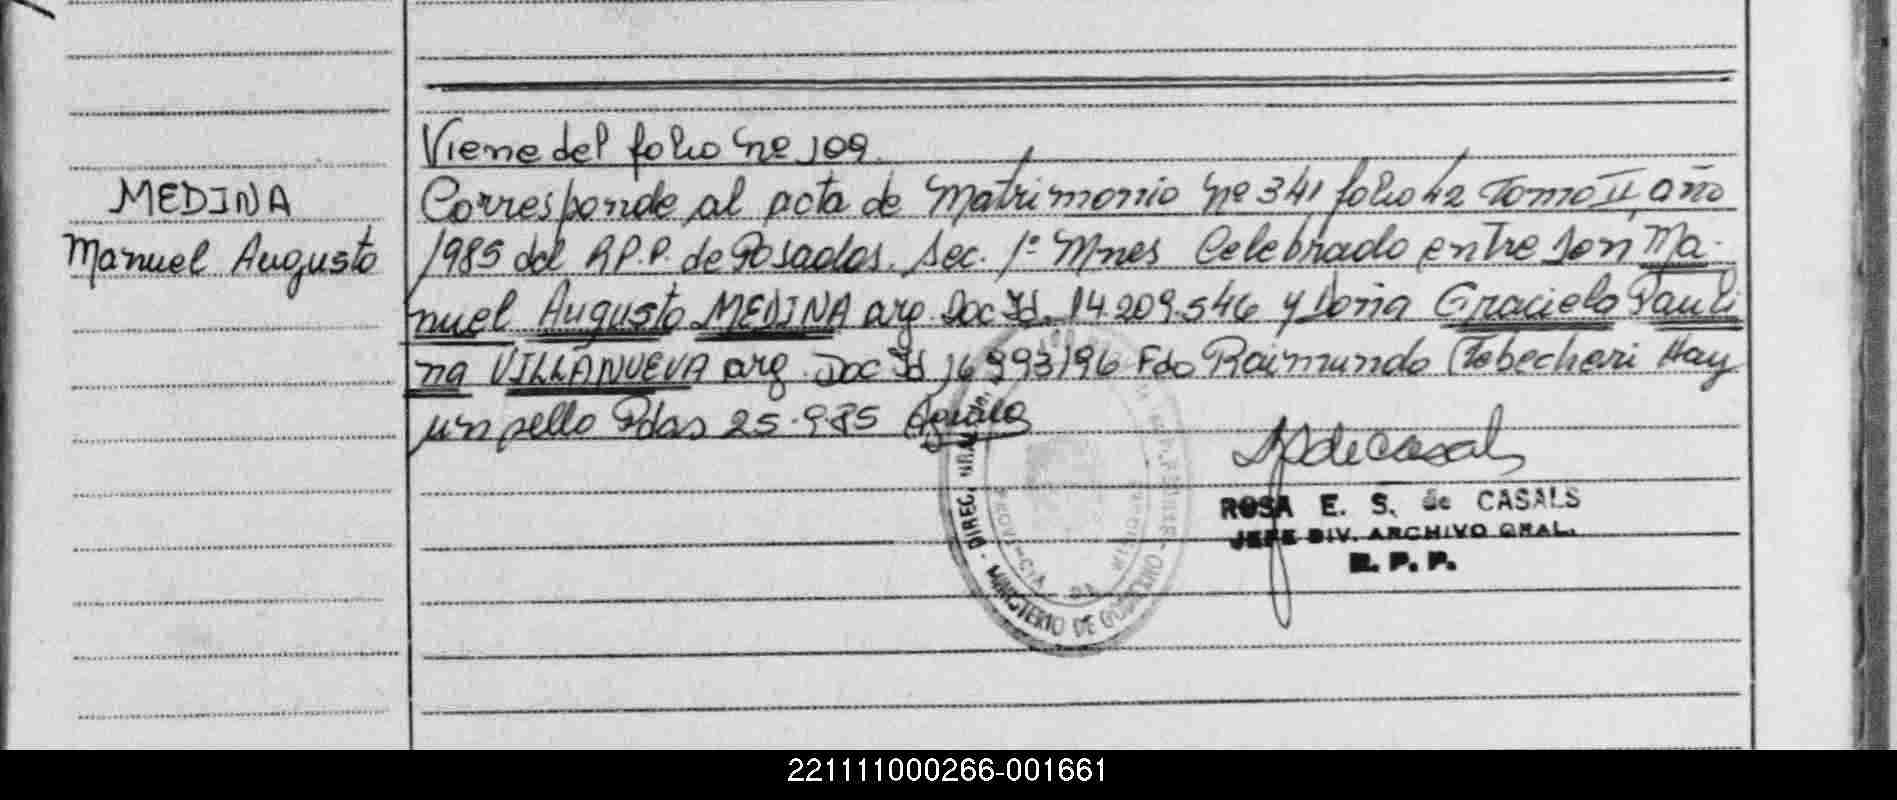 Viene del folio Nº 109.
MEDINA
Manuel Augusto
Corresponde al acta de Matrimonio Nº 341 folio 42 Tomo II, año
1985 del R.P.P. de Posadas. Sec. 1º Mnes Celebrado entre Don Ma-
nuel Augusto MEDINA arg. Doc Id. 14.209.546 y Doña Graciela Pauli
na VILLANUEVA arg. Doc Id 16 993196 Fdo Raimundo Hay
un sello Pdas 25.985
ROSA E. S. de CASALS
JEFE DIV. ARCHIVO GRAL.
R. P. P.
MINISTERIO DE GOBIERNO
PROVINCIA DE
221111000266-001661